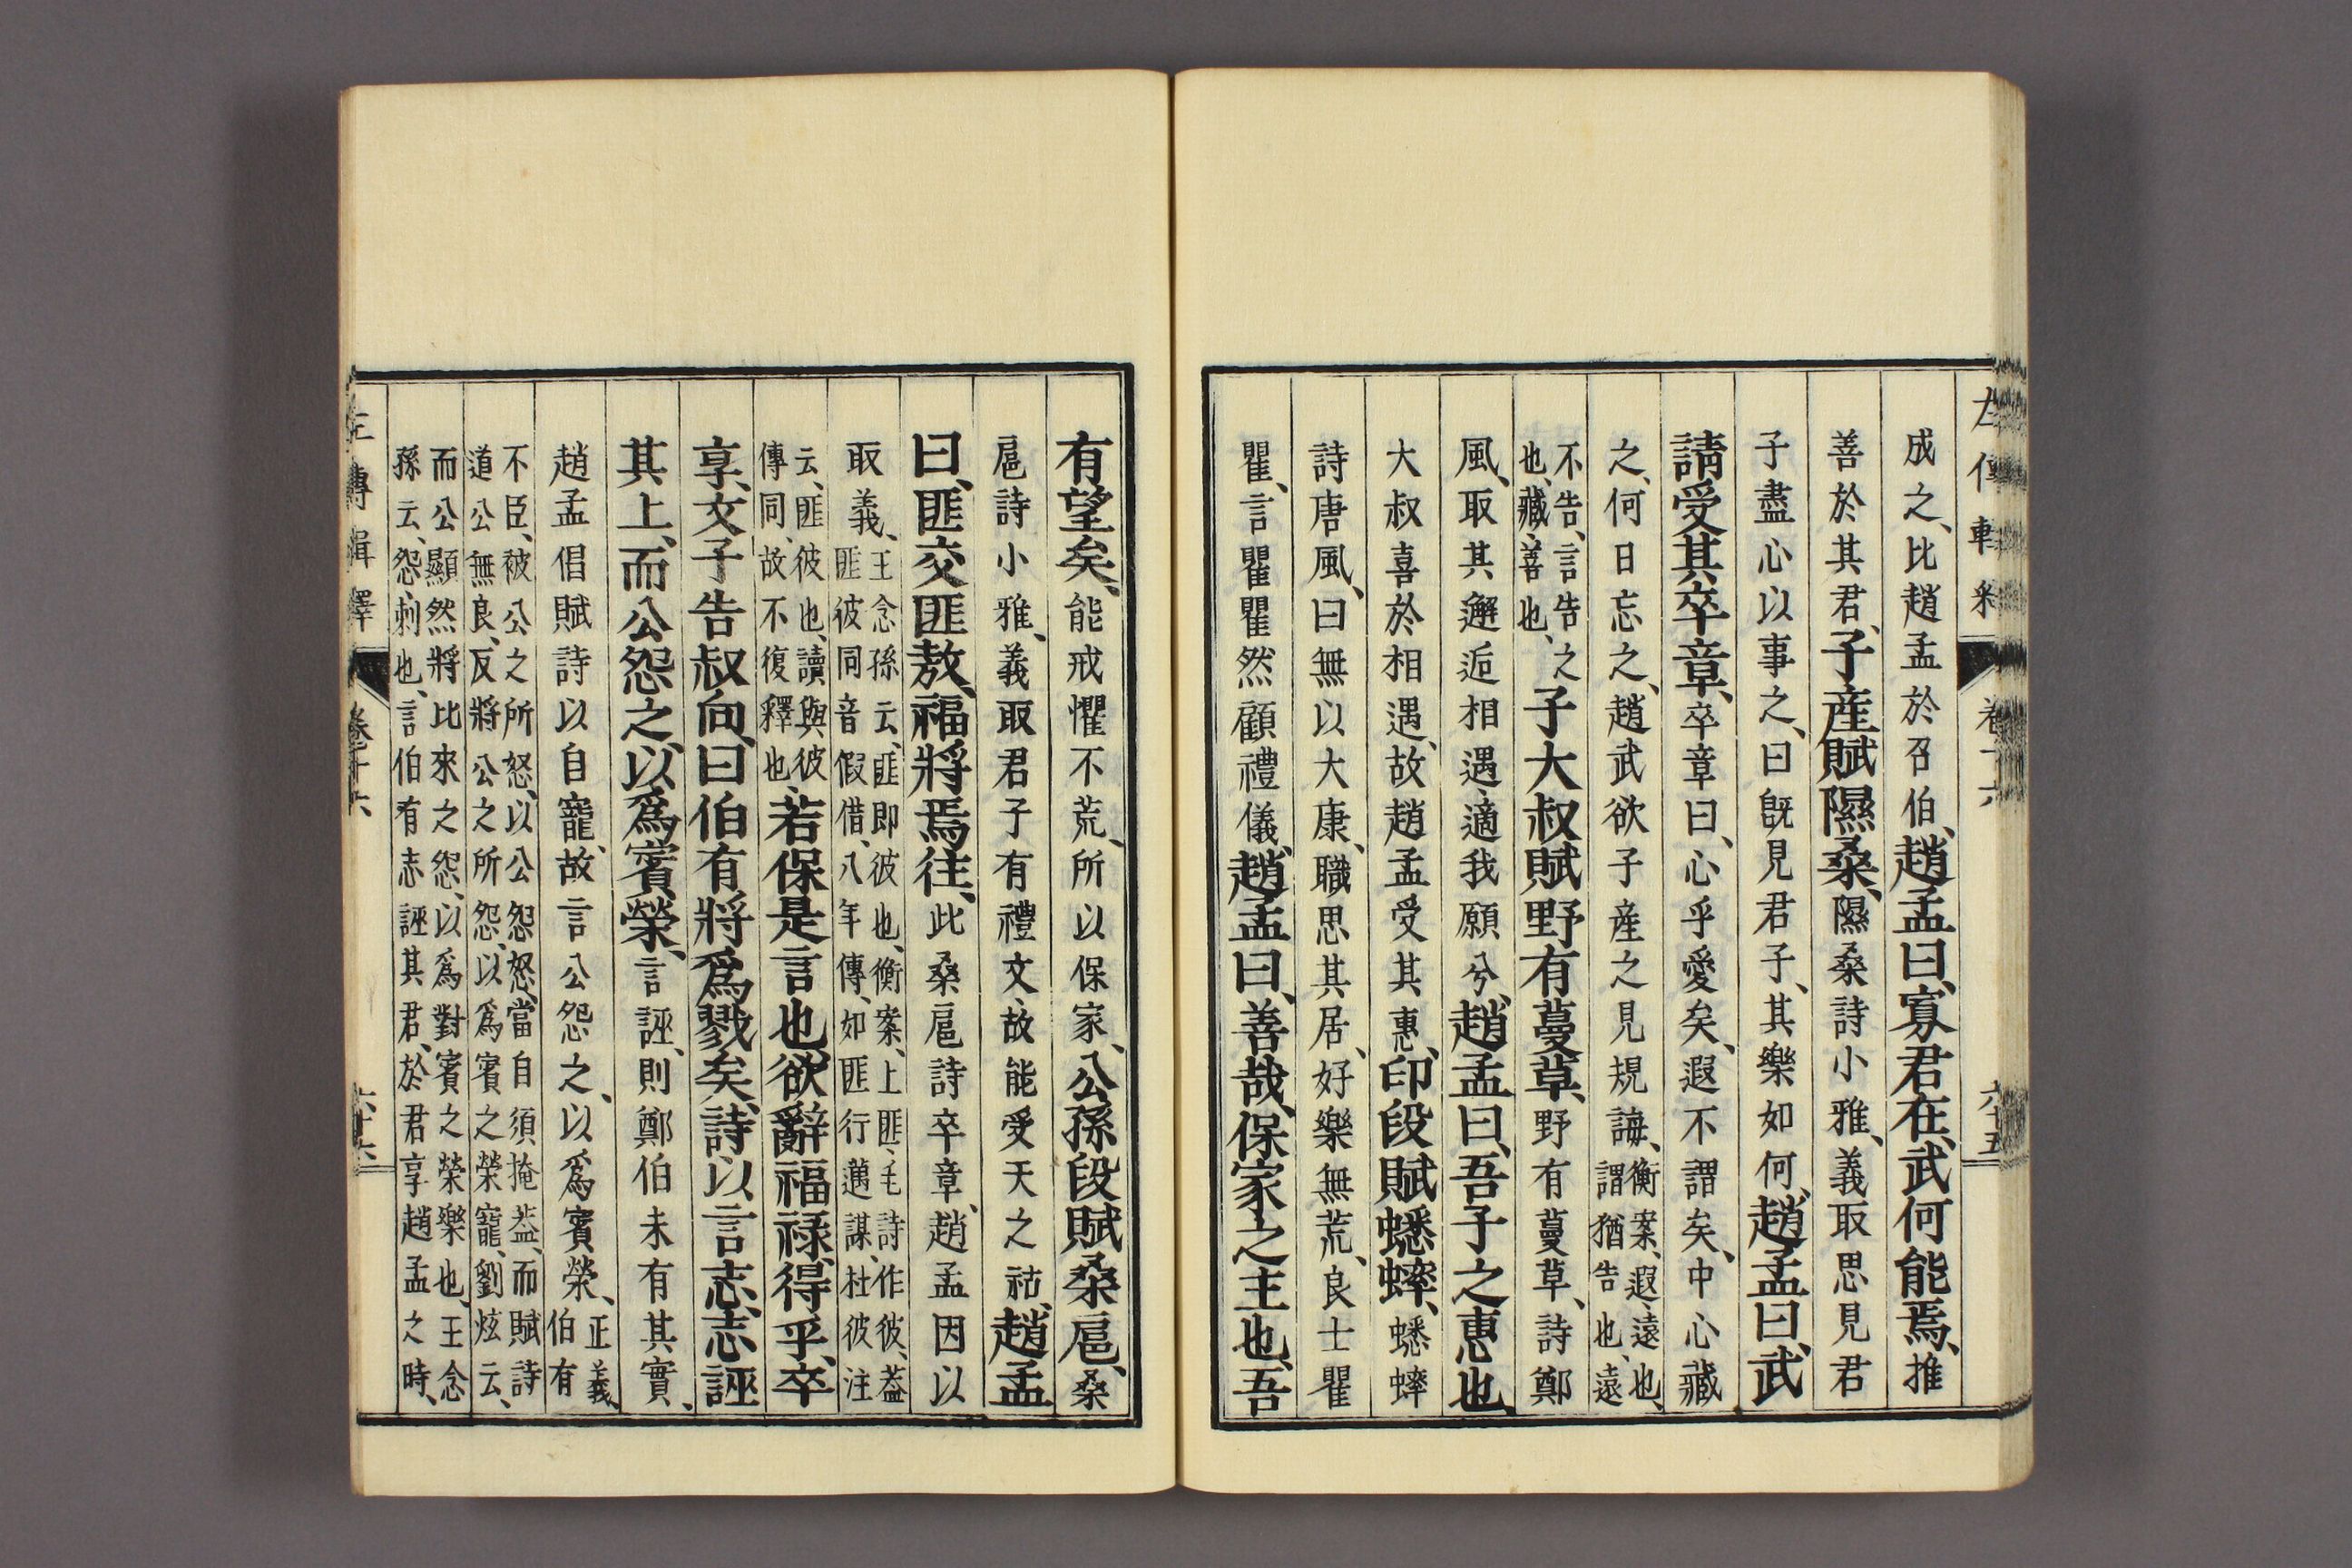 成之、比趙孟於召伯、趙孟曰、寡君在、武何能焉、推
善於其君、子產賦隰桑、隰桑詩小雅、義取思見君
子盡心以事之、曰旣見君子、其樂如何、趙孟曰、武
請受其卒章、卒章曰、心乎愛矣、遐不謂矣、中心藏
之、何日忘之、趙武欲子產之見規誨、衡案、遐、遠也、謂猶告也、遠
不告、言告之也、藏、善也、子大叔賦野有蔓草、野有蔓草、詩鄭
風、取其邂逅相遇、適我願兮、趙孟曰、吾子之惠也、
大叔喜於相遇、故趙孟受其惠、印段賦蟋蟀、蟋蟀
詩唐風、曰無以大康、職思其居、好樂無荒、良士瞿
瞿、言瞿瞿然顧禮儀、趙孟曰、善哉、保家之主也、吾
有望矣、能戒懼不荒、所以保家、公孫段賦桑扈、桑
扈詩小雅、義取君子有禮文、故能受天之祜、趙孟
曰、匪交匪敖、福將焉往、此桑扈詩卒章、趙孟因以
取義、王念孫云、匪即彼也、衡案、上匪、毛詩作彼、葢匪彼同音假借、八年傳、如匪行邁謀、杜彼注
云、匪彼也、讀與彼傳同、故不復釋也、若保是言也、欲辭福祿、得乎、卒
享、文子告叔向、曰伯有將爲戮矣、詩以言志、志誣
其上、而公怨之、以爲賓榮、言誣、則鄭伯未有其實、
趙孟倡賦詩以自寵、故言公怨之、以爲賓榮、正義、伯有
不臣、被公之所怒、以公怨怒、當自須掩葢、而賦詩道公無良、反將公之所怨、以爲賓之榮寵、劉炫云、
而公顯然將比來之怨、以爲對賓之榮樂也、王念孫云、怨、刺也、言伯有志誣其君、於君享趙孟之時、
卷十六